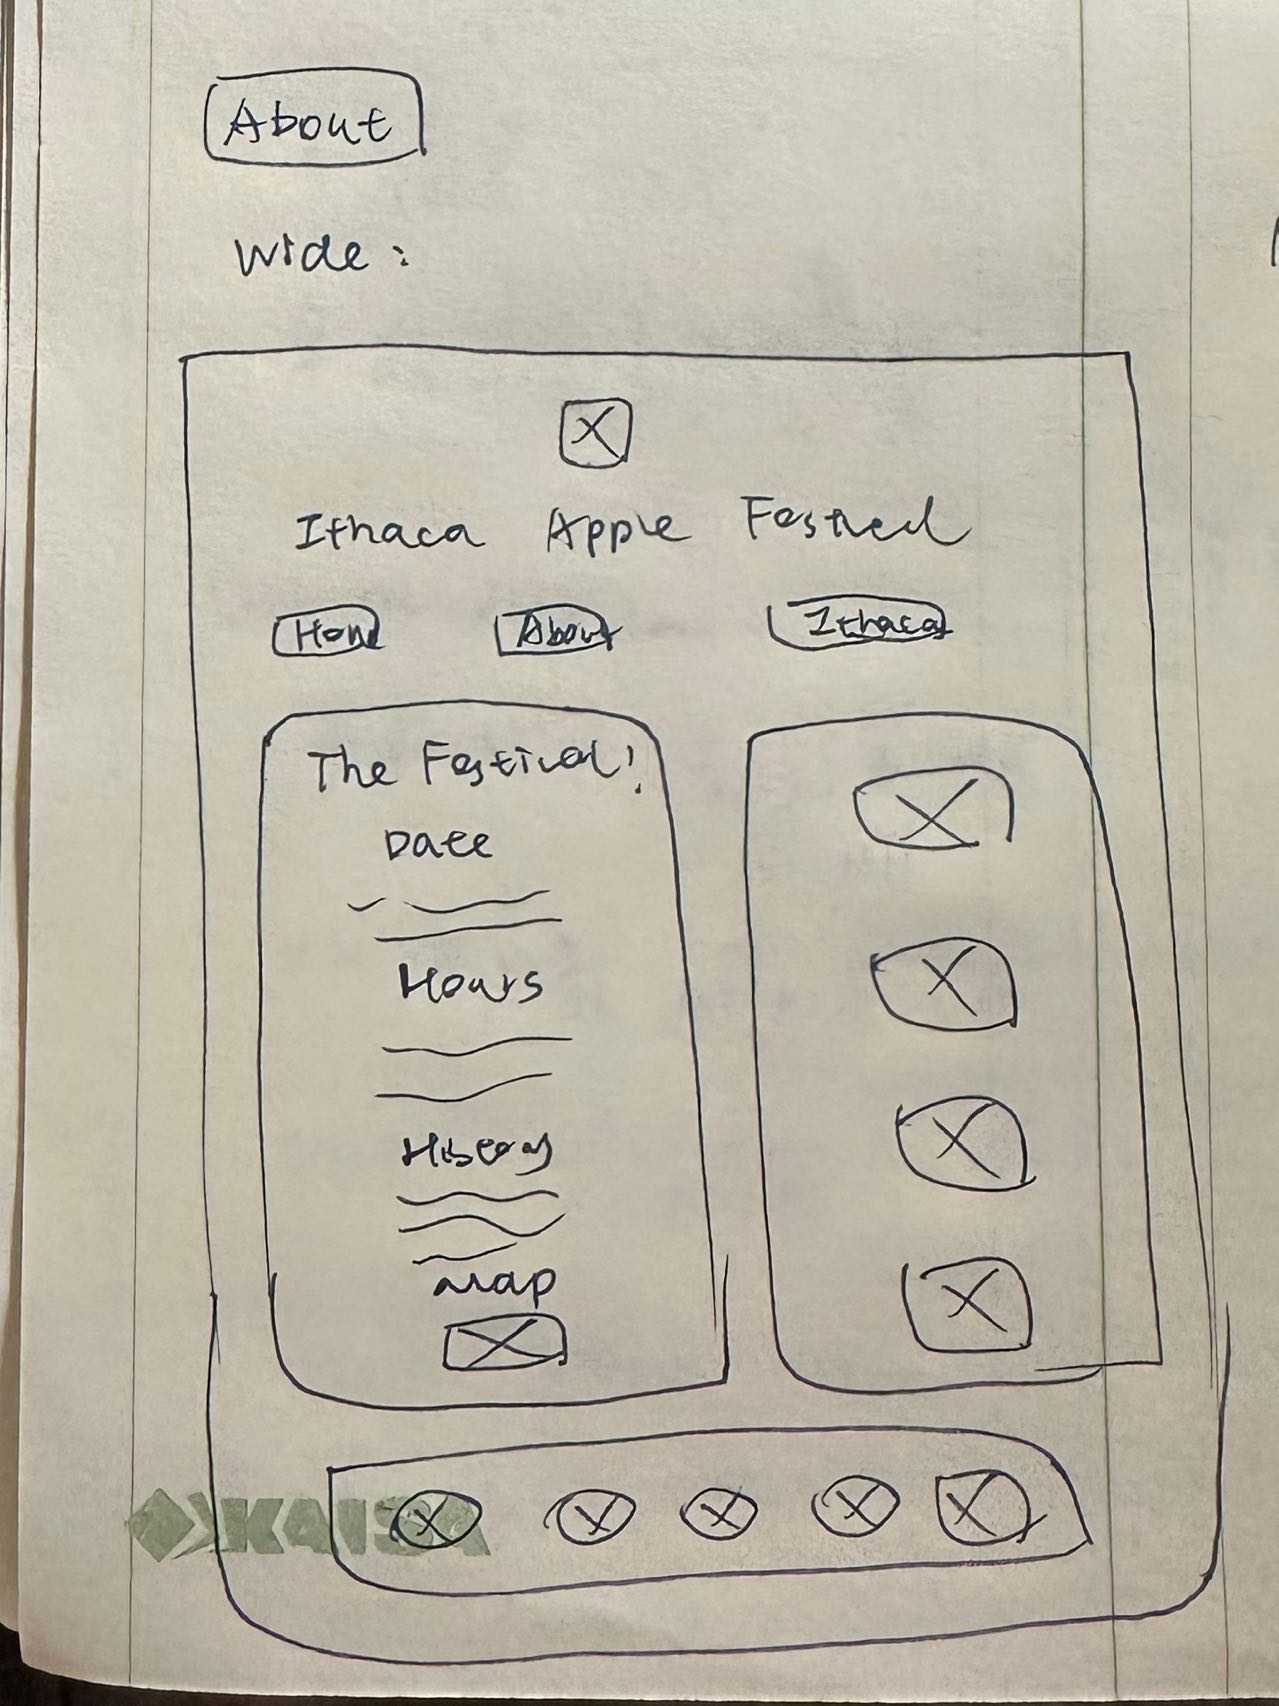 About
Wide:
Ithaca Apple Festival
Home About Ithaca
The Festival!
Date
Hours
History
Map
KAISA